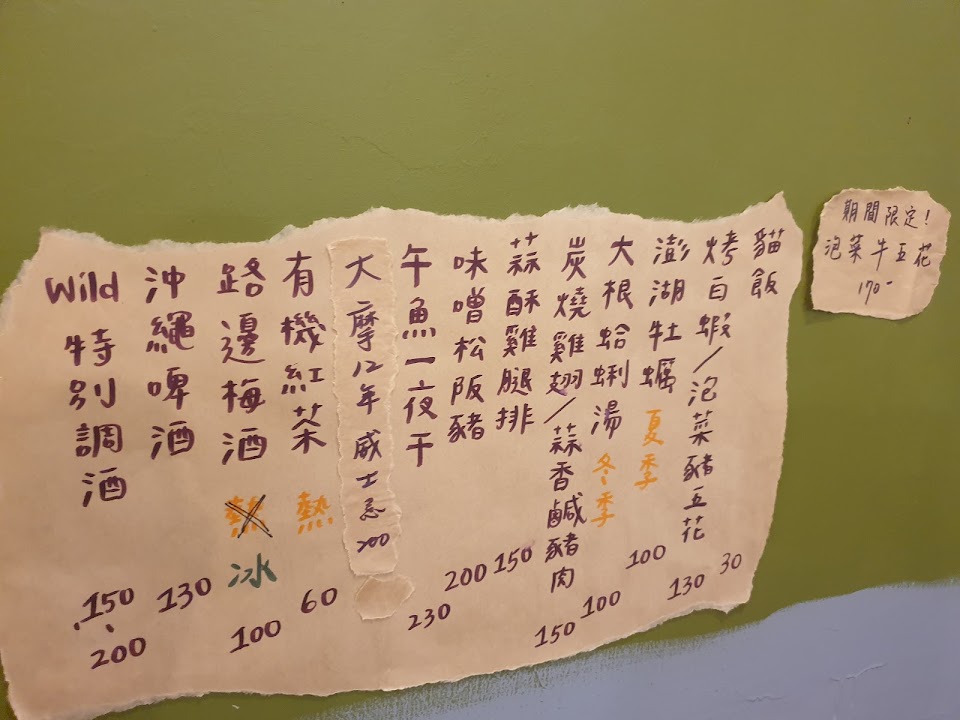 貓飯 30
烤白蝦／泡菜豬五花 130
澎湖牡蠣 夏季 100
大根蛤蜊湯 冬季 100
炭燒雞翅／蒜香鹹豬肉 150
蒜酥雞腿排 150
味噌松阪豬 200
午魚一夜干 230
大摩12年威士忌 200
有機紅茶 熱 60
路邊梅酒 熱 冰 100
沖繩啤酒 130
Wild 特別調酒 150、、200
期間限定!
泡菜牛五花
170-